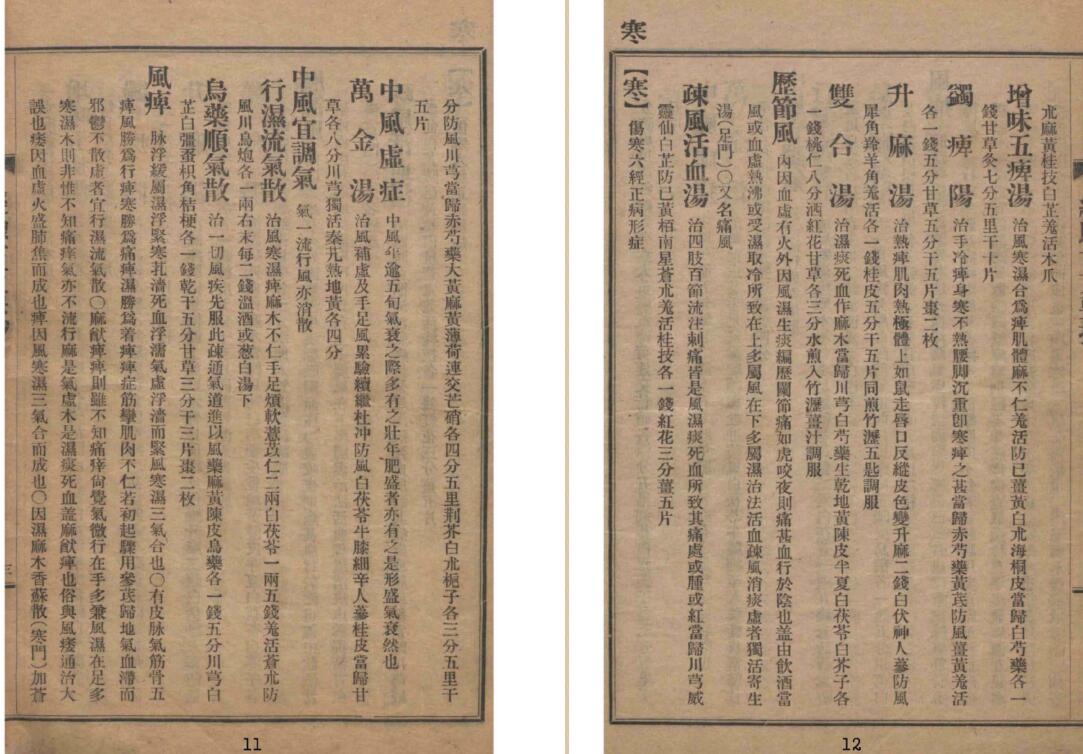 分防風川芎當歸赤芍藥大黃麻黃薄荷連交芒硝各四分五里荆芥白朮梔子各三分五里干
五片
中風虛症 中風年逾五旬氣衰之際多有之壯年肥盛者亦有之是形盛氣衰然也
萬金湯 治風補虛及手足風累驗續繼杜冲防風白茯苓牛膝細辛人蔘桂皮當歸甘
草各八分川芎獨活秦艽熟地黃各四分
中風宜調氣 氣一流行風亦消散
行濕流氣散 治風寒濕痺麻木不仁手足煩軟薏苡仁二兩白茯苓一兩五錢羌活蒼朮防
風川烏炮各一兩右末每二錢溫酒或葱白湯下
烏藥順氣散 治一切風疾先服此疎通氣道進以風藥麻黃陳皮烏藥各一錢五分川芎白
芷白彊蚕枳角桔梗各一錢乾干五分甘草三分干三片棗二枚
風痺 脉浮緩屬濕浮緊寒扎濇死血浮濡氣虛浮濇而緊風寒濕三氣合也〇有皮脉氣筋骨五
痺風勝爲行痺寒勝爲痛痺濕勝爲着痺痺症筋攣肌肉不仁若初起驟用參芪歸地氣血滯而
邪鬱不散虛者宜行濕流氣散〇麻猷痺痺則雖不知痛痒尙覺氣微行在手多兼風濕在足多
寒濕木則非惟不知痛痒氣亦不流行麻是氣虛木是濕痰死血盖麻猷痺也俗與風痿通治大
誤也痿因血虛火盛肺焦而成也痺因風寒濕三氣合而成也〇因濕麻木香蘇散(寒門)加蒼
三
11
寒
朮麻黃桂技白芷羗活木瓜
增味五痺湯 治風寒濕合爲痺肌體麻不仁羗活防已薑黃白朮海桐皮當歸白芍藥各一
錢甘草灸七分五里干十片
蠲痺陽 治手冷痺身寒不熱腰脚沉重卽寒痺之甚當歸赤芍藥黃芪防風薑黃羗活
各一錢五分甘草五分干五片棗二枚
升麻湯 治熱痺肌肉熱極體上如鼠走唇口反縱皮色變升麻二錢白伏神人蔘防風
犀角羚羊角羗活各一錢桂皮五分干五片同煎竹瀝五匙調服
雙合湯 治濕痰死血作麻木當歸川芎白芍藥生乾地黃陳皮半夏白茯苓白芥子各
一錢桃仁八分酒紅花甘草各三分水煎入竹瀝薑汁調服
歷節風 內因血虛有火外因風濕生痰編歷關節痛如虎咬夜則痛甚血行於陰也盖由飮酒當
風或血虛熱沸或受濕取冷所致在上多屬風在下多屬濕治法活血疎風消痰虛者獨活寄生
湯(足門)〇又名痛風
疎風活血湯 治四肢百節流注刺痛皆是風濕痰死血所致其痛處或腫或紅當歸川芎威
靈仙白芷防已黃栢南星蒼朮羗活桂技各一錢紅花三分薑五片
【寒】 傷寒六經正病形症
12